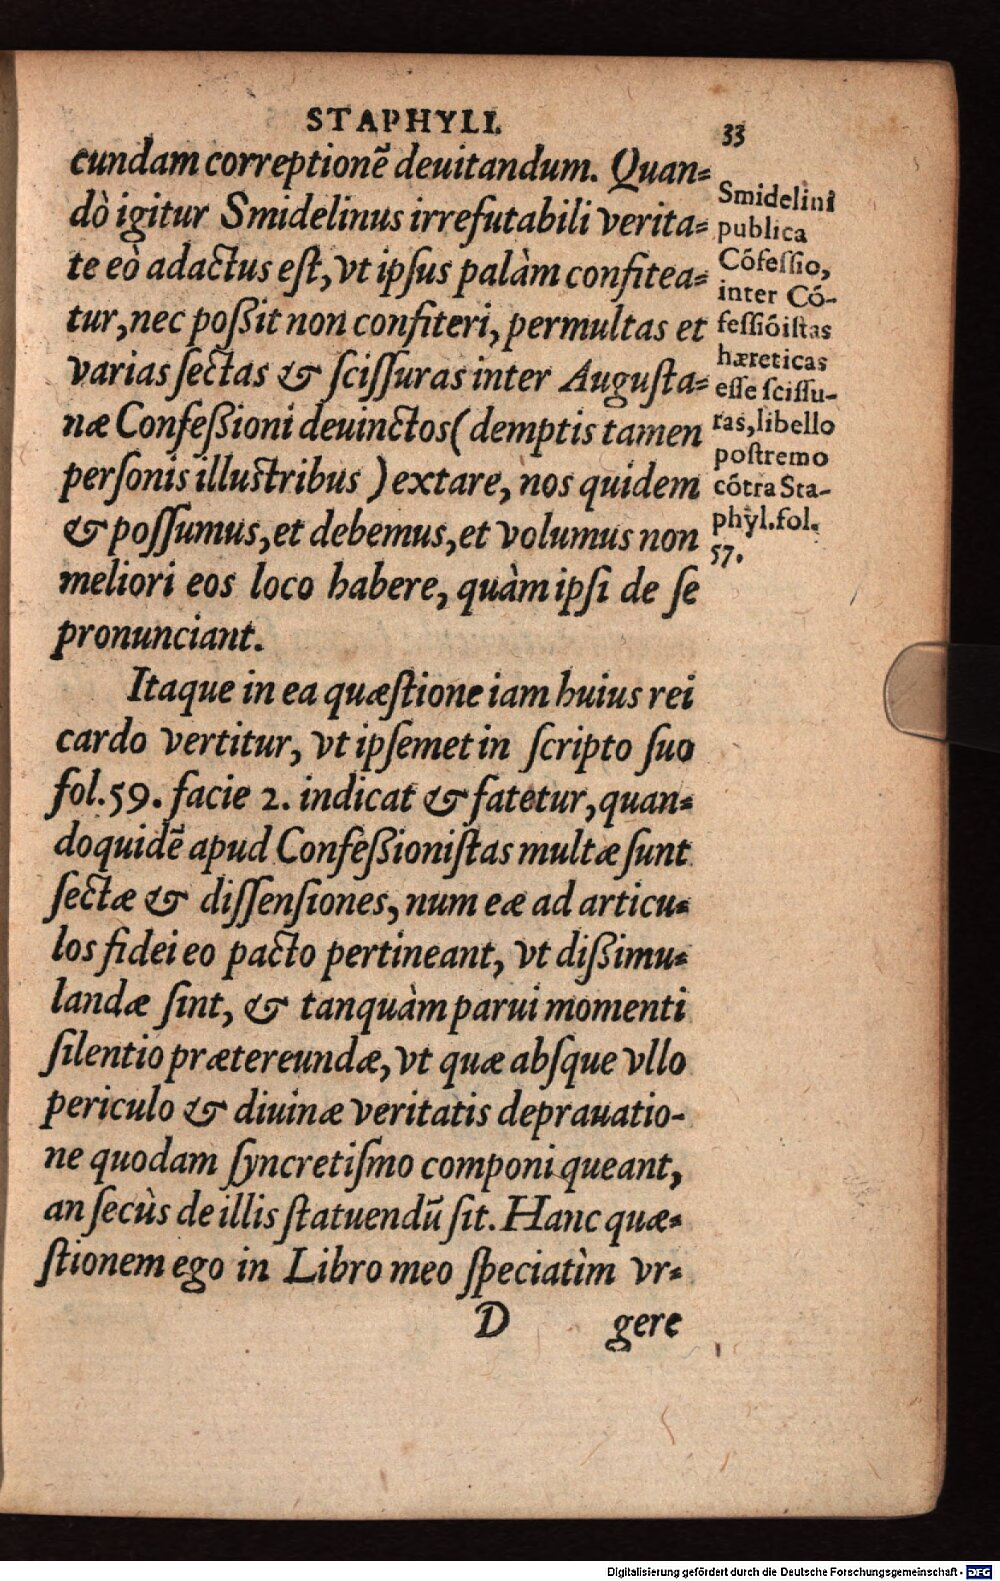 STAPHYLI.
33
cundam correptionē deuitandum. Quan-
dò igitur Smidelinus irrefutabili verita-
te eò adactus est, vt ipsus palàm confitea-
tur, nec poßit non confiteri, permultas et
varias sectas & scissuras inter Augusta-
næ Confeßioni deuinctos ( demptis tamen
personis illustribus ) extare, nos quidem
& possumus, et debemus, et volumus non
meliori eos loco habere, quàm ipsi de se
pronunciant.
Itaque in ea quæstione iam huius rei
cardo vertitur, vt ipsemet in scripto suo
fol. 59. facie 2. indicat & fatetur, quan-
doquidē apud Confeßionistas multæ sunt
sectæ & dissensiones, num eæ ad articu-
los fidei eo pacto pertineant, vt dißimu-
landæ sint, & tanquàm parui momenti
silentio prætereundæ, vt quæ absque vllo
periculo & diuinæ veritatis deprauatio-
ne quodam syncretismo componi queant,
an secùs de illis statuendū sit. Hanc quæ-
stionem ego in Libro meo speciatìm vr-
D gere
Smidelini
publica
Cōfessio,
inter Cō-
fessiōistas
hæreticas
esse scissu-
ras, libello
postremo
cōtra Sta-
phyl. fol.
57.
Digitalisierung gefördert durch die Deutsche Forschungsgemeinschaft - DFG